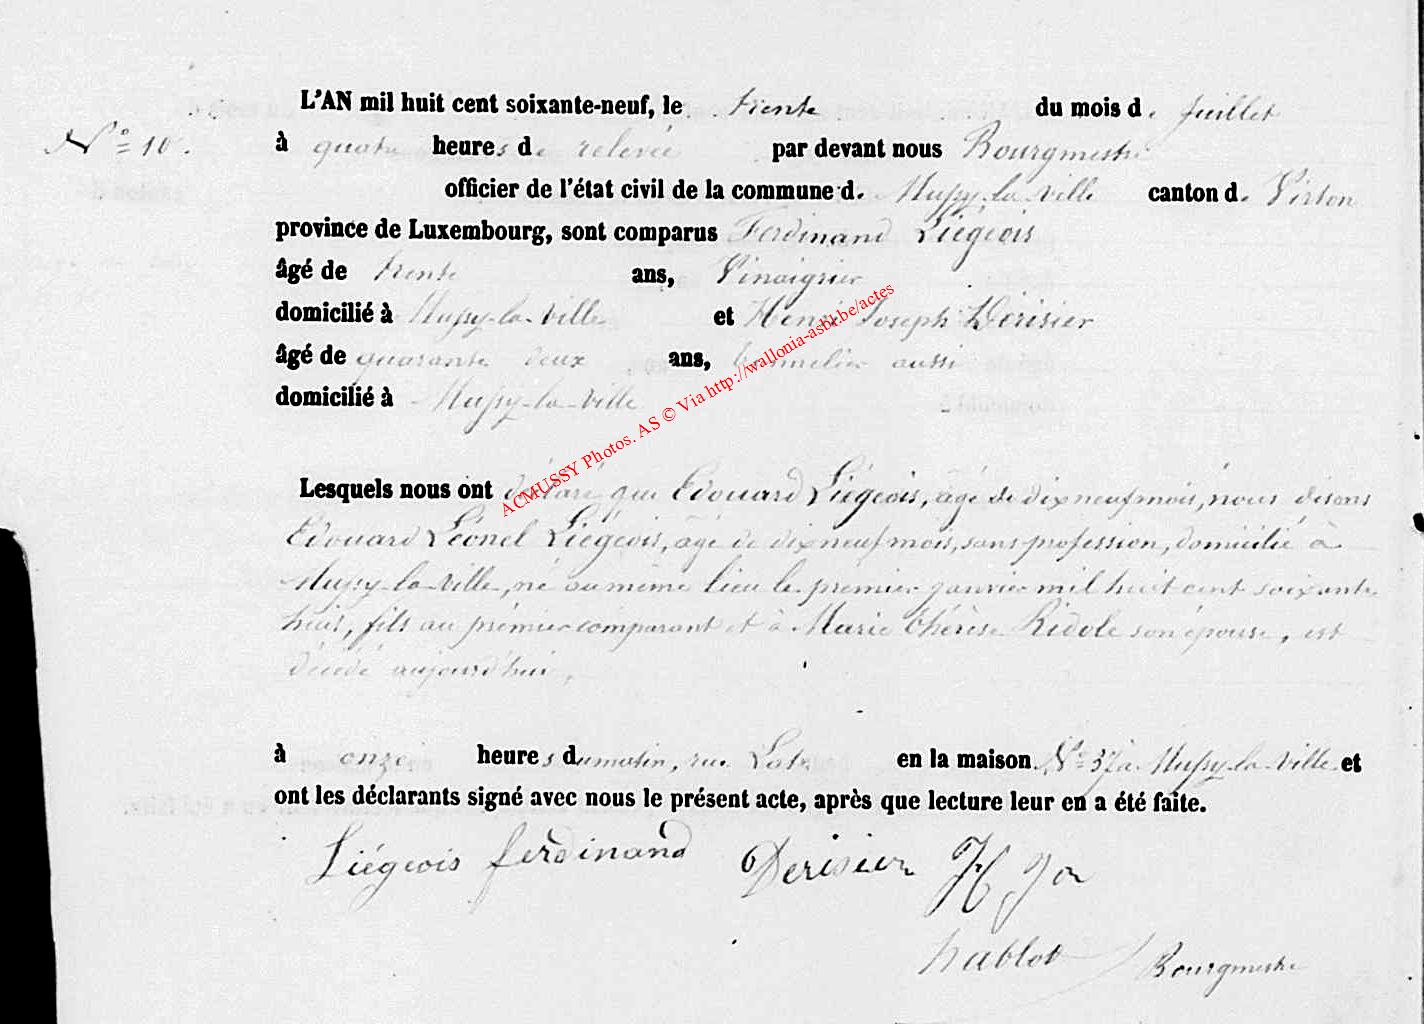 L'AN mil huit cent soixante-neuf, le trente du mois de Juillet
N° 10. à quatre heures de relevée par devant nous Bourgmestre
officier de l'état civil de la commune de Mussy-la-Ville canton de Virton
province de Luxembourg, sont comparus Ferdinand Liégeois
âgé de trente ans, Vinaigrier
domicilié à Mussy-la-Ville et Henri Joseph Dérisier
âgé de quarante deux ans, aussi
domicilié à Mussy-la-Ville
ACMUSSY Photos. AS © Via http://wallonia-asbl.be/actes
Lesquels nous ont déclaré que Edouard Liégeois, âgé de dixneuf mois, nous disons
Edouard Léonel Liégeois, âgé de dixneuf mois, sans profession, domicilié à
Mussy-la-Ville, né au même lieu le premier janvier mil huit cent soixante
huit, fils au prémier comparant et à Marie Thérèse Ridole son épouse, est
décédé aujourd'hui,
à onze heures du matin, rue en la maison N° 37 à Mussy-la-Ville et
ont les déclarants signé avec nous le présent acte, après que lecture leur en a été faite.
Liégeois ferdinand Derisier H Jo
hablot Bourgmestre